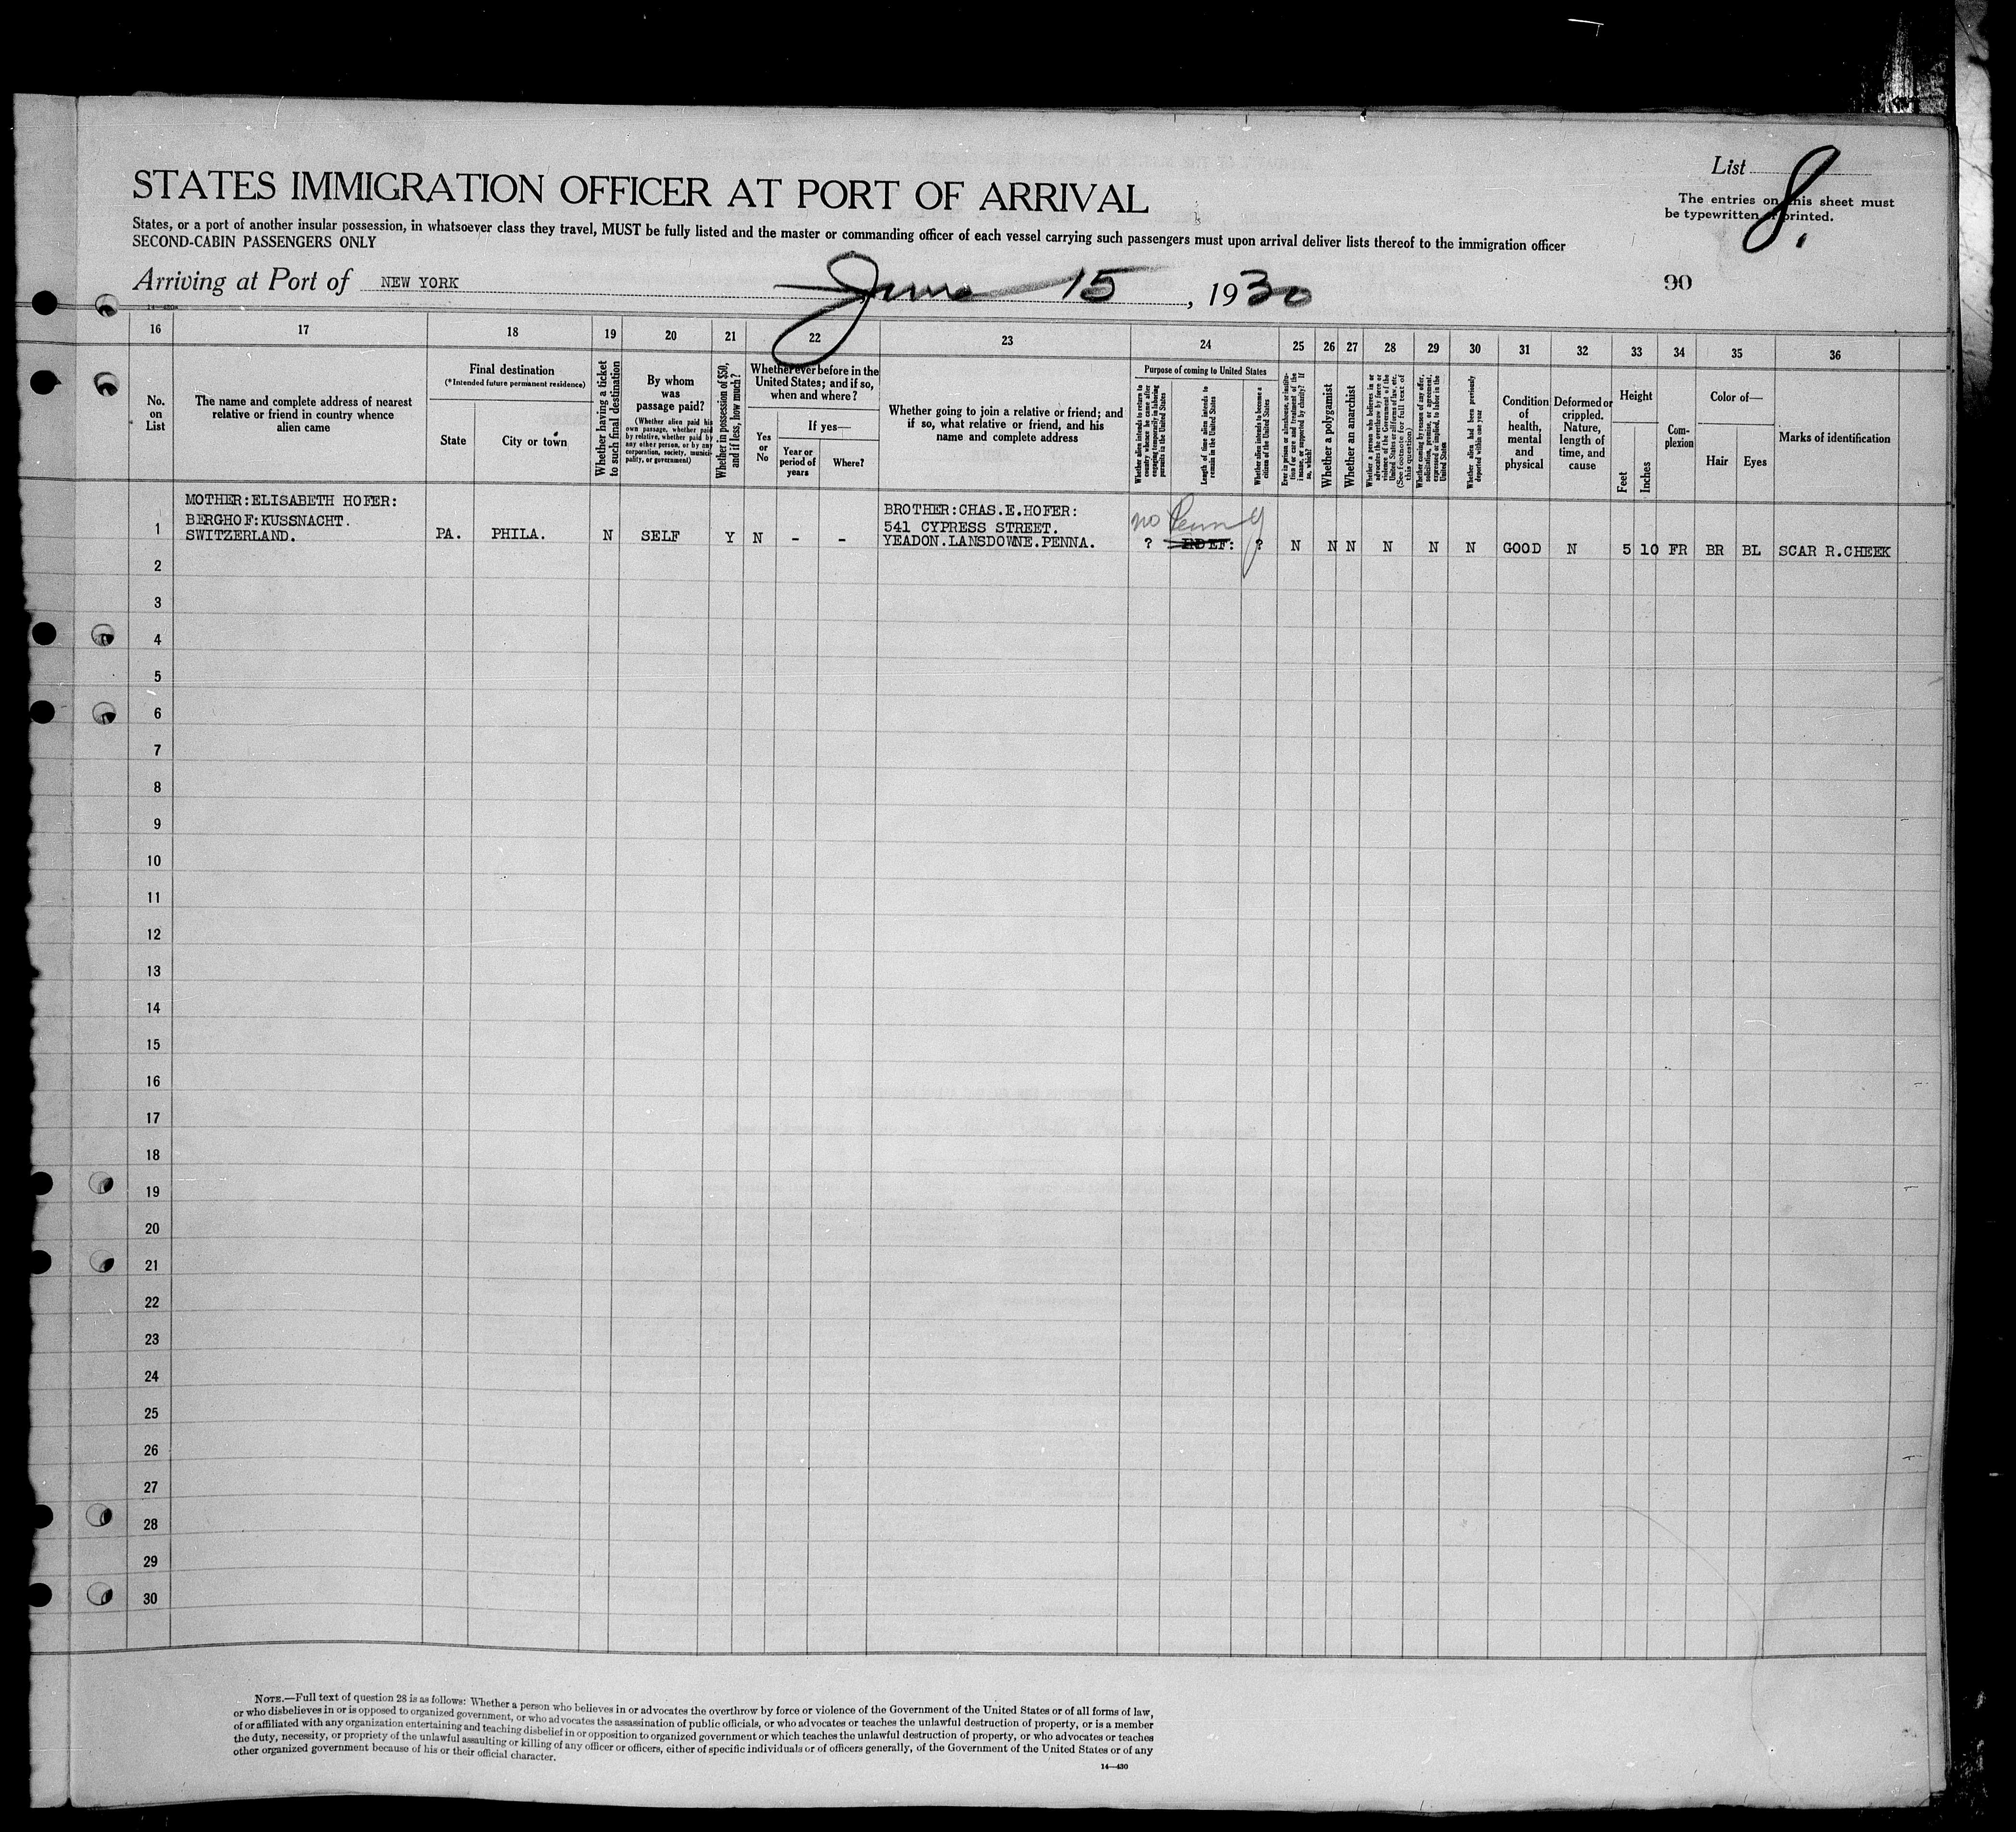 STATES IMMIGRATION OFFICER AT PORT OF ARRIVAL
List 8.
The entries on this sheet must
be typewritten or printed.
States, or a port of another insular possession, in whatsoever class they travel, MUST be fully listed and the master or commanding officer of each vessel carrying such passengers must upon arrival deliver lists thereof to the immigration officer
SECOND-CABIN PASSENGERS ONLY
Arriving at Port of NEW YORK June 15, 1930
90
16 17 18 19 20 21 22 23 24 25 26 27 28 29 30 31 32 33 34 35 36
No.
on
List
The name and complete address of nearest
relative or friend in country whence
alien came
Final destination
(*Intended future permanent residence)
State
City or town
Whether having a ticket
to such final destination
By whom
was
passage paid?
(Whether alien paid his
own passage, whether paid
by relative, whether paid by
any other person, or by any
corporation, society, munici-
pality, or government)
Whether in possession of $50,
and if less, how much?
Whether ever before in the
United States; and if so,
when and where?
Yes
or
No
If yes—
Year or
period of
years
Where?
Whether going to join a relative or friend; and
if so, what relative or friend, and his
name and complete address
Purpose of coming to United States
Whether alien intends to return to
country whence he came after
engaging temporarily in laboring
pursuits in the United States
Length of time alien intends to
remain in the United States
Whether alien intends to become a
citizen of the United States
Ever in prison or almshouse, or institu-
tion for care and treatment of the
insane, or supported by charity? If
so, which?
Whether a polygamist
Whether an anarchist
Whether a person who believes in or
advocates the overthrow by force or
violence of the Government of the
United States or all forms of law, etc.
(See footnote for full text of
this question)
Whether coming by reason of any offer,
solicitation, promise, or agreement,
expressed or implied, to labor in the
United States
Whether alien had been previously
deported within one year
Condition
of
health,
mental
and
physical
Deformed or
crippled.
Nature,
length of
time, and
cause
Height
Feet
Inches
Com-
plexion
Color of—
Hair
Eyes
Marks of identification
MOTHER:ELISABETH HOFER:
BERGHOF:KUSSNACHT.
SWITZERLAND.
BROTHER:CHAS.E.HOFER:
541 CYPRESS STREET.
YEADON.LANSDOWNE.PENNA.
no Perm y
1 PA. PHILA. N SELF Y N - - ? INDEF: ? N N N N N N GOOD N 5 10 FR BR BL SCAR R.CHEEK
2
3
4
5
6
7
8
9
10
11
12
13
14
15
16
17
18
19
20
21
22
23
24
25
26
27
28
29
30
NOTE.—Full text of question 28 is as follows: Whether a person who believes in or advocates the overthrow by force or violence of the Government of the United States or of all forms of law,
or who disbelieves in or is opposed to organized government, or who advocates the assassination of public officials, or who advocates or teaches the unlawful destruction of property, or is a member
of or affiliated with any organization entertaining and teaching disbelief in or opposition to organized government or which teaches the unlawful destruction of property, or who advocates or teaches
the duty, necessity, or propriety of the unlawful assaulting or killing of any officer or officers, either of specific individuals or of officers generally, of the Government of the United States or of any
other organized government because of his or their official character.
14—430